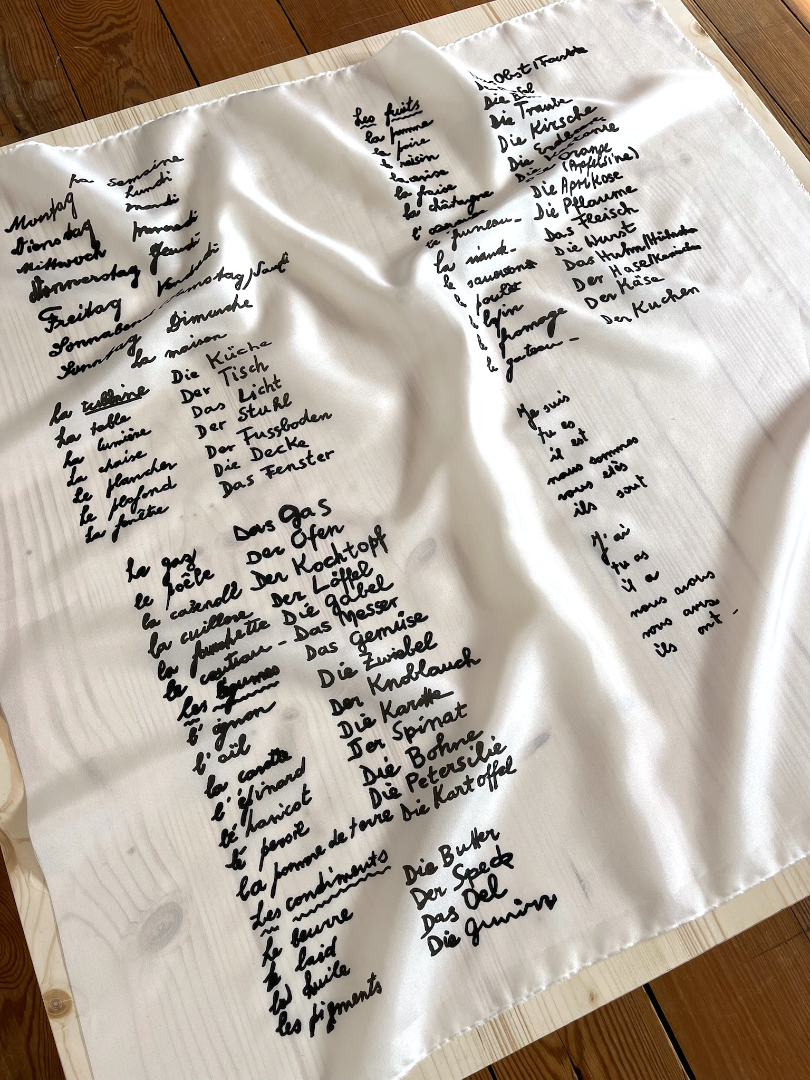 La semaine
Montag Lundi
Dienstag mardi
Mittwoch mercredi
Donnerstag Jeudi
Freitag Vendredi
Sonnabend Samstag
Sonntag Dimanche
la maison
La cuisine Die Küche
La table Der Tisch
La lumière Das Licht
La chaise Der Stuhl
Le plancher Der Fussboden
Le plafond Die Decke
La fenêtre Das Fenster
La gaz Das Gas
le poêle Der Ofen
la caseroll Der Kochtopf
la cuillere Der Löffel
la fourchette Die Gabel
le couteau - Das Messer
Les légumes Das Gemüse
l'ognon Die Zwiebel
l'aïl Der Knoblauch
la carotte Die Karotte
l'épinard Der Spinat
le haricot Die Bohne
le persil Die Petersilie
La pomme de terre Die Kartoffel
Les condiments
Le beurre Die Butter
le laid Der Speck
la huile Das Oel
les pigments Die
Les fruits Obst
la pomme Die
la poire Die Traube
raisin Die Kirsche
la cerise Die
la fraise Die Orange (Apfelsine)
la châtaigne Die Aprikose
l' Die Pflaume
Das Fleisch
la Die Wurst
le Das Huhn/
le poulet Der Hase/
lapin Der Käse
le fromage Der Kuchen
le gateau -
Je suis
tu es
il est
nous sommes
vous etês
ils sont
J'ai
tu as
il a
nous avons
vous avez
ils ont -